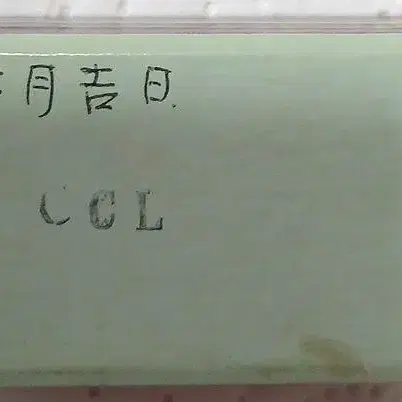 月吉日
CCL